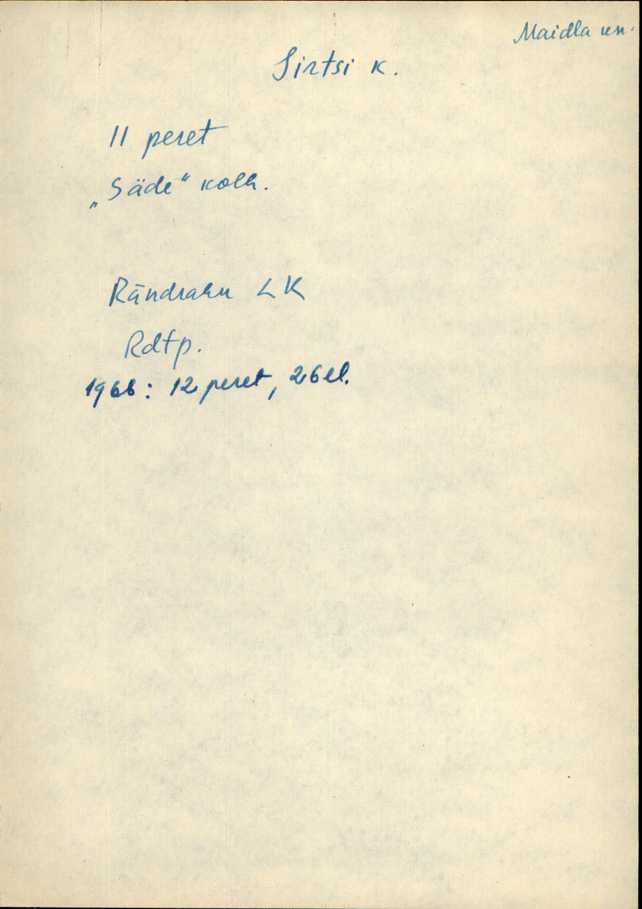 Maidla kn.
Sirtsi k.
11 peret
„Säde“ kolh.
Rändrahu LK
Rdtp.
1966: 12 peret, 26 el.